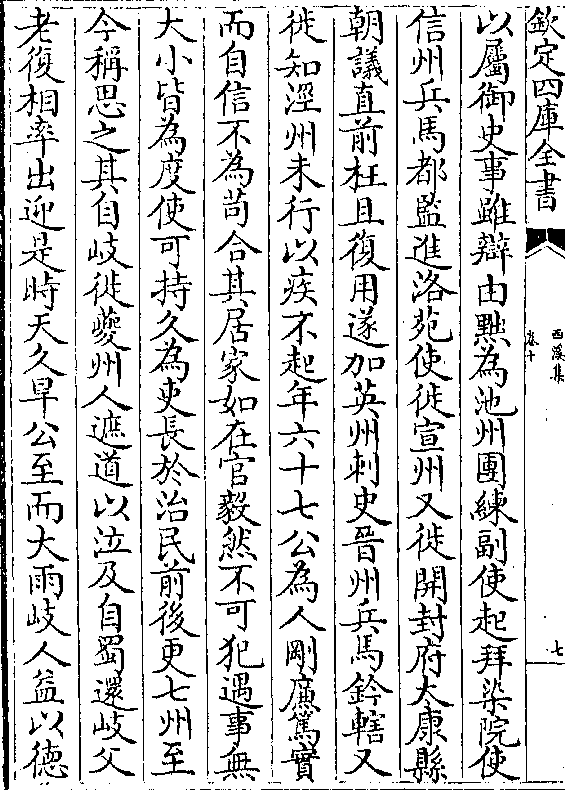 欽定四庫全書
西溪集
卷十
七
以屬御史事雖辯由黜為池州團練副使起拜染院使
信州兵馬都監進洛苑使徙宣州又徙開封府太康縣
朝議直前枉且復用遂加英州刺史晉州兵馬鈐轄又
徙知涇州未行以疾不起年六十七公為人剛廉篤實
而自信不為苟合其居家如在官毅然不可犯遇事無
大小皆為度使可持久為吏長於治民前後更七州至
今稱思之其自岐徙夔州人遮道以泣及自蜀還岐父
老復相率出迎是時天久旱公至而大雨岐人益以德